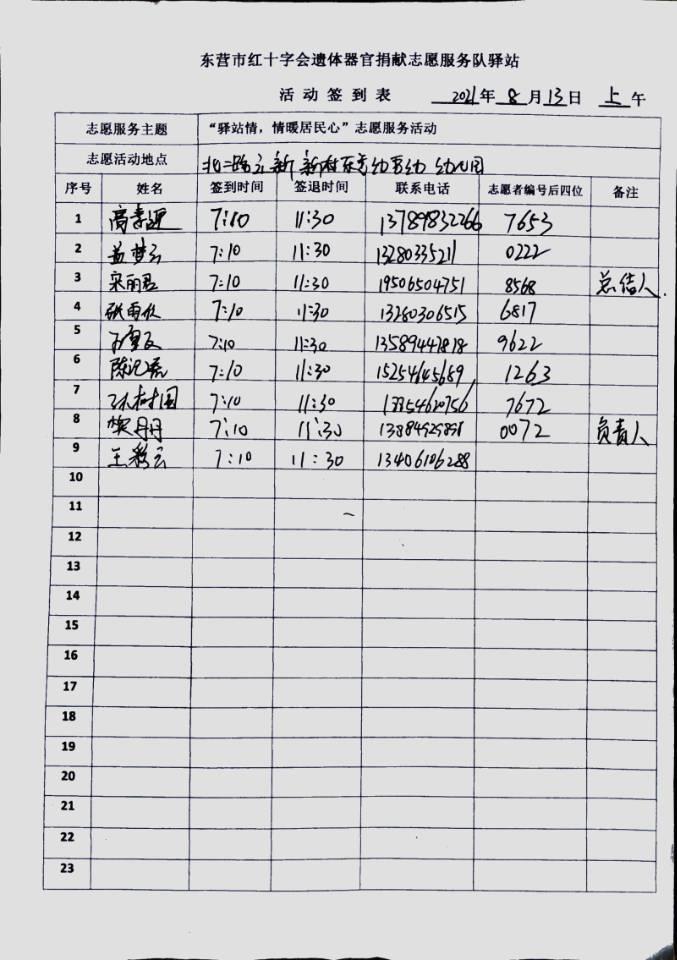 东营市红十字会遗体器官捐献志愿服务队驿站
活动签到表 2021年8月13日 上午
志愿服务主题 “驿站情，情暖居民心”志愿服务活动
志愿活动地点 北二路 新 幼儿园
序号 姓名 签到时间 签退时间 联系电话 志愿者编号后四位 备注
1 高 迎 7:10 11:30 13789832266 7653
2 盖梦云 7:10 11:30 13280335211 0222
3 宋丽君 7:10 11:30 19506504751 8568 总结人
4 张雨欣 7:10 11:30 13280306515 6817
5 7:10 11:30 9622
6 陈 7:10 11:30 15254645689 1263
7 树国 7:10 11:30 7672
8 樊丹丹 7:10 11:30 0072 负责人
9 王彩云 7:10 11:30 13406106288
10
11
12
13
14
15
16
17
18
19
20
21
22
23